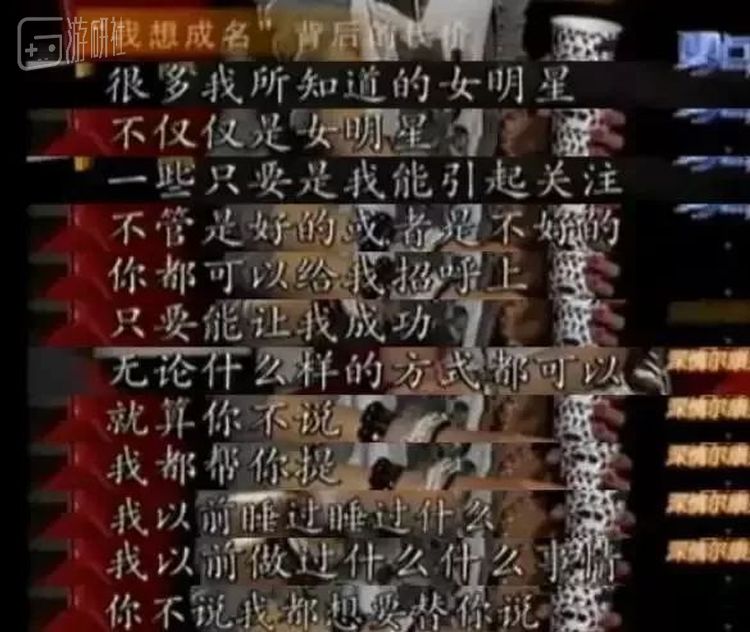 游研社
“我想成名”背后的代价
很多我所知道的女明星
不仅仅是女明星
一些只要是我能引起关注
不管是好的或者是不好的
你都可以给我招呼上
只要能让我成功
无论什么样的方式都可以
就算你不说
我都帮你提
我以前睡过睡过什么
我以前做过什么什么事情
你不说我都想要替你说